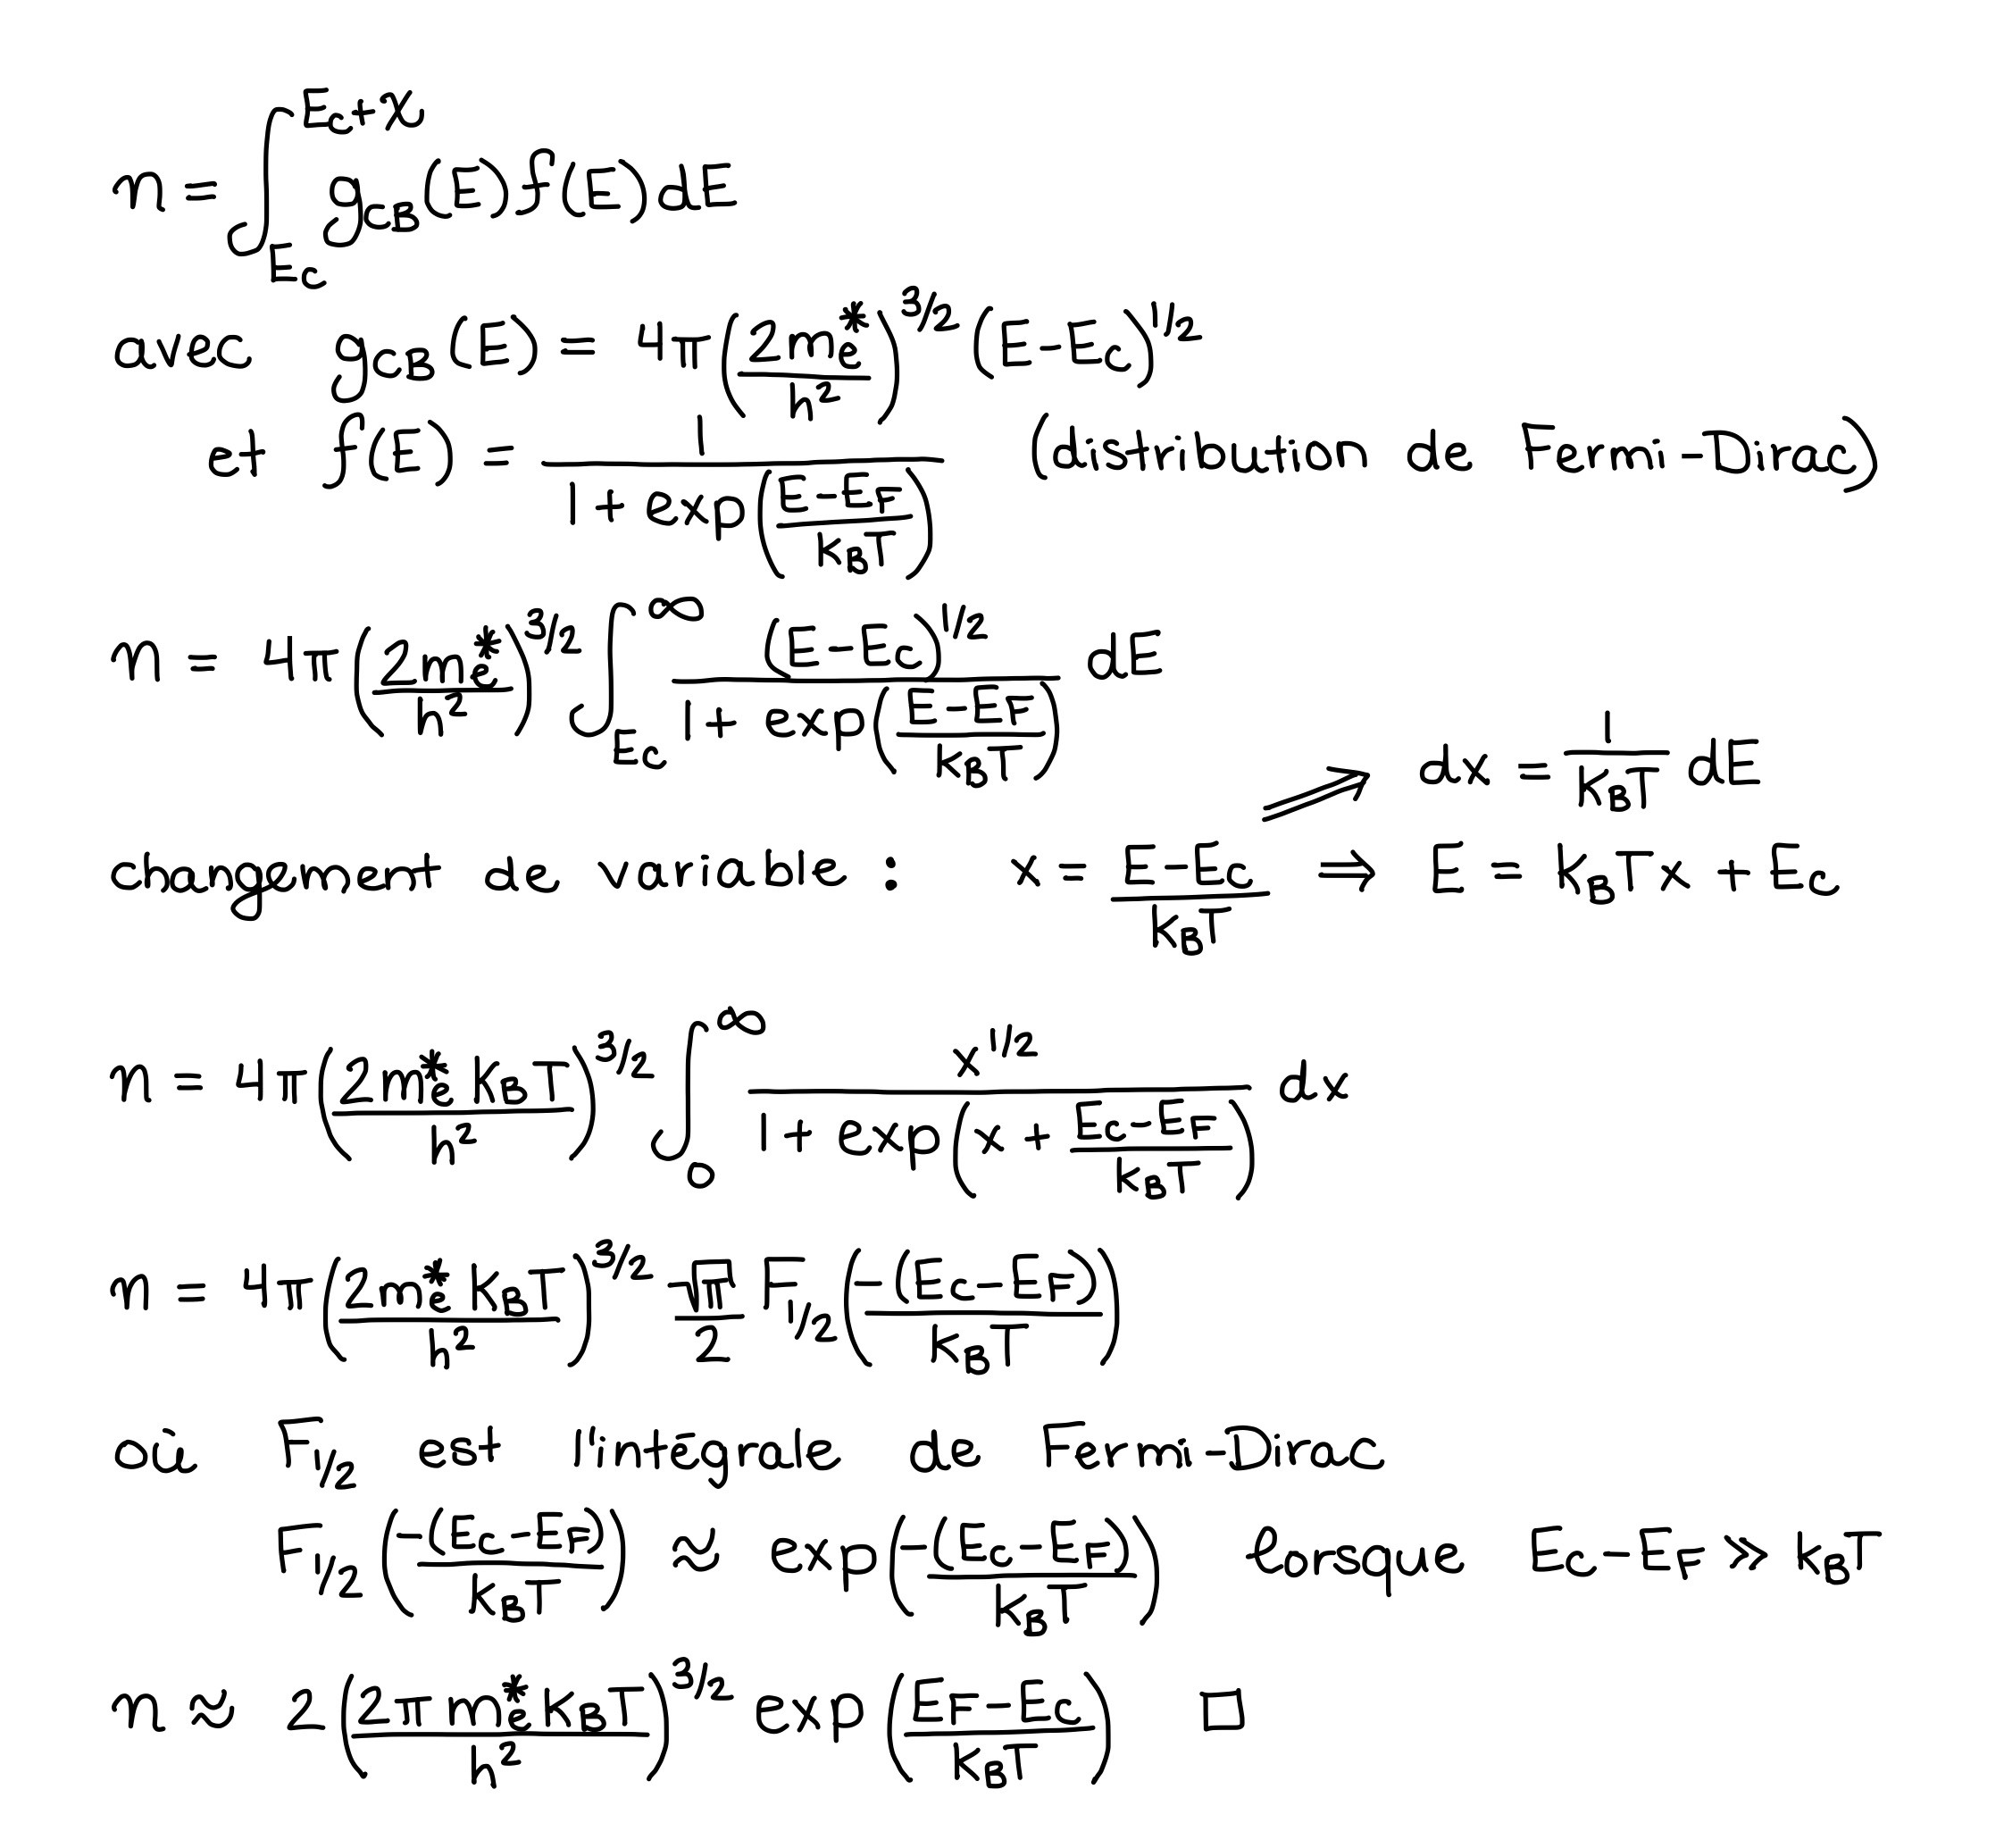 n = ∫_{E_c}^{E_c+χ} g_{CB}(E) f(E) dE
avec g_{CB}(E) = 4π (2m_e^*/h²)^{3/2} (E-E_c)^{1/2}
et f(E) = 1/(1 + exp((E-E_F)/(k_BT))) (distribution de Fermi-Dirac)
n = 4π (2m_e^*/h²)^{3/2} ∫_{E_c}^{∞} (E-E_c)^{1/2}/(1 + exp((E-E_F)/(k_BT))) dE
⇒ dx = 1/(k_BT) dE
changement de variable : x = (E-E_c)/(k_BT) ⇒ E = k_BTx + E_c
n = 4π (2m_e^*k_BT/h²)^{3/2} ∫_0^∞ x^{1/2}/(1 + exp(x + (E_c-E_F)/(k_BT))) dx
n = 4π (2m_e^*k_BT/h²)^{3/2} √π/2 F_{1/2}(-(E_c-E_F)/(k_BT))
où F_{1/2} est l'intégrale de Fermi-Dirac
F_{1/2}(-(E_c-E_F)/(k_BT)) ≈ exp(-(E_c-E_F)/(k_BT)) lorsque E_c-E_F >> k_BT
n ≈ 2 (2πm_e^*k_BT/h²)^{3/2} exp((E_F-E_c)/(k_BT)) □